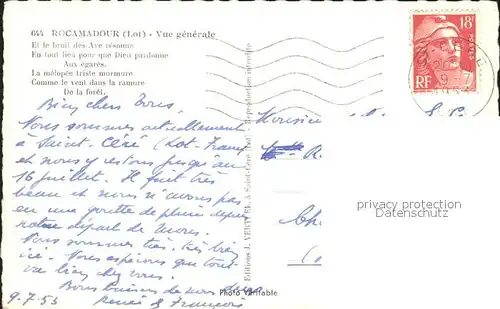 644 ROCAMADOUR (Lot) - Vue générale
Et le bruit des Ave résonne
En tout lieu pour que Dieu pardonne
Aux égarés.
La mélopée triste murmure
Comme le vent dans la ramure
De la forêt.
18F
POSTES
RF
Bien chers tous,
Nous sommes actuellement
à Saint-Céré (Lot-France)
et nous y restons jusqu'au
16 juillet. Il fait très
beau et nous n'avons pas
eu une goutte de pluie depuis
notre départ de Mons.
Nous sommes très, très bien
ici. Nous espérons que tout
va bien chez vous.
Bons baisers de nous deux
Renée & François
9-7-53
Monsieur
Editions J. VERTUEL, à Saint-Céré (Lot) - Reproduction interdite
Photo Véritable
privacy protection
oldthing